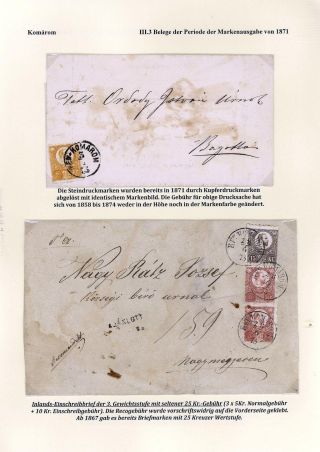 Komárom
III.3 Belege der Periode der Markenausgabe von 1871
Tek. Ordódy István Úrnak
KOMÁROM
Die Steindruckmarken wurden bereits in 1871 durch Kupferdruckmarken
abgelöst mit identischem Markenbild. Die Gebühr für obige Drucksache hat
sich von 1858 bis 1874 weder in der Höhe noch in der Markenfarbe geändert.
Nagy Rátz Jozsef
Községi biró urnak
AJÁNLOTT
159
Nagymegyeren
Inlands-Einschreibbrief der 3. Gewichtsstufe mit seltener 25 Kr.-Gebühr (3 x 5Kr. Normalgebühr
+ 10 Kr. Einschreibgebühr). Die Recogebühr wurde vorschriftswidrig auf die Vorderseite geklebt.
Ab 1867 gab es bereits Briefmarken mit 25 Kreuzer Wertstufe.